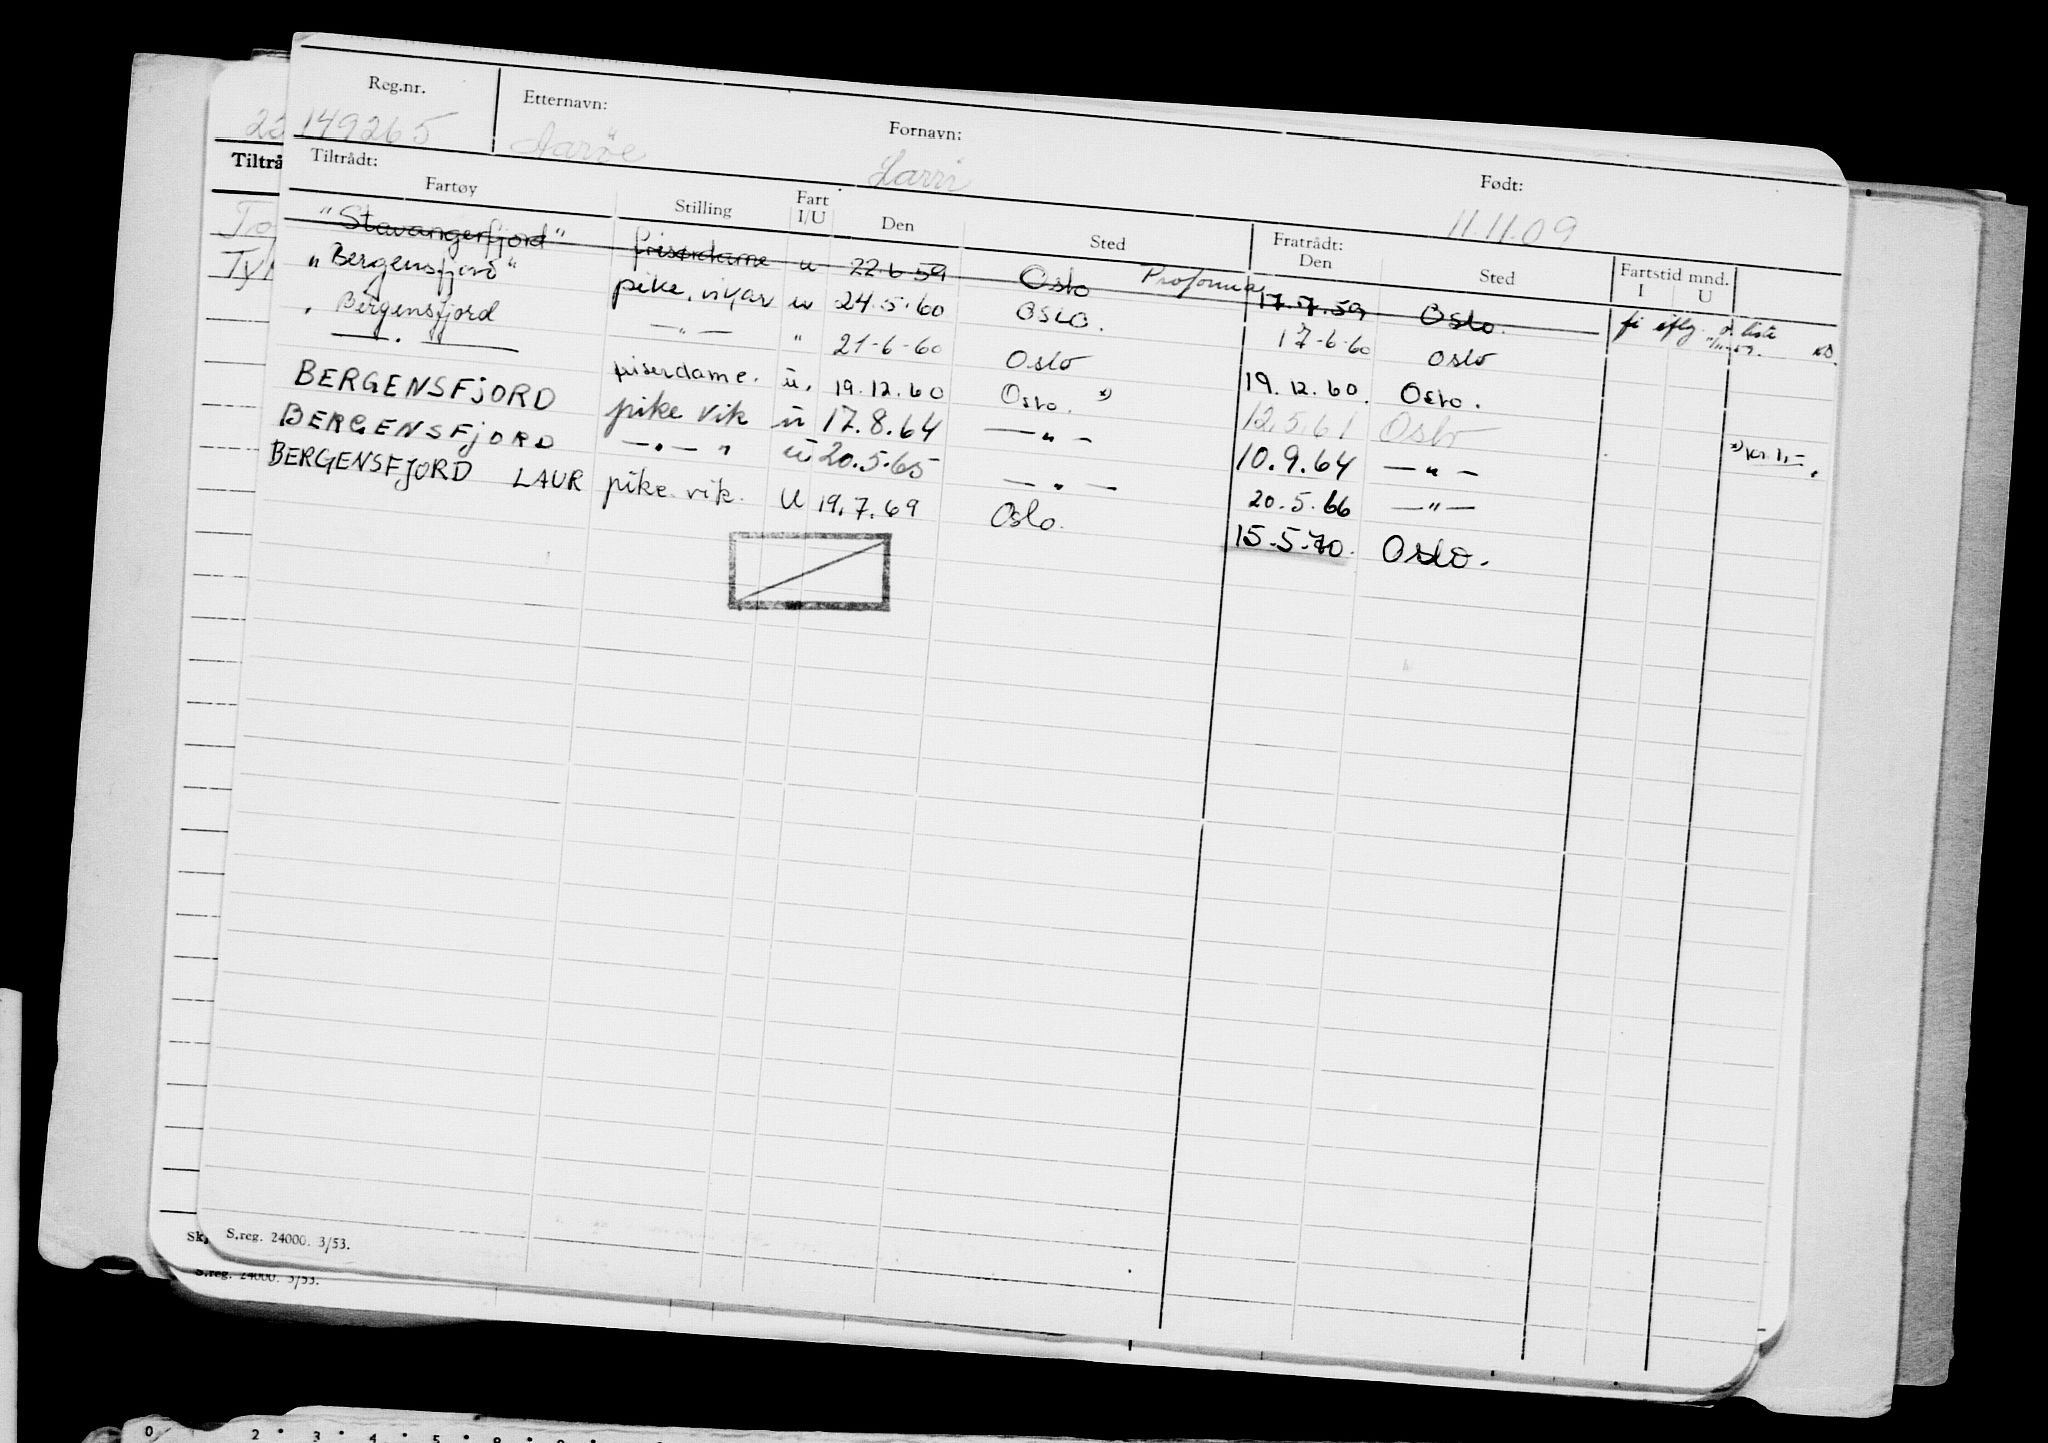 Reg.nr. Etternavn: Fornavn: Født:
149265 Aarøe Harri 11.11.09
Tiltrådt: Fratrådt:
Fartøy Stilling Fart I/U Den Sted Den Sted Fartstid mnd. I U
"Stavangerfjord" frisørdame u 22.6.59 Oslo Proforma 17.7.59 Oslo.
"Bergensfjord" pike, vikar u 24.5.60 OSLO. 17-6-60 Oslo
" Bergensfjord — " — " 21-6-60 Oslo 19.12.60. Oslo.
— " — friserdame. u. 19.12.60 Oslo. x) 12.5.61 Oslo x) kr. 1,-
BERGENSFJORD pike vik u 17.8.64 — " — 10.9.64 — " —
BERGENSFJORD — " — " u 20.5.65 — " — 20.5.66 — " —
BERGENSFJORD LAUR pike vik. U 19.7.69 Oslo. 15.5.70. Oslo.
S.reg. 24000. 3/53.
S.reg. 24000. 3/53.
0 2 3 4 5